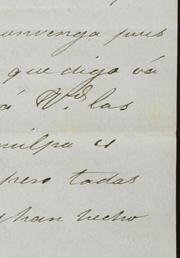 convenga pues
que digo vá
á Vds las
culpa es
pero todas
han hecho